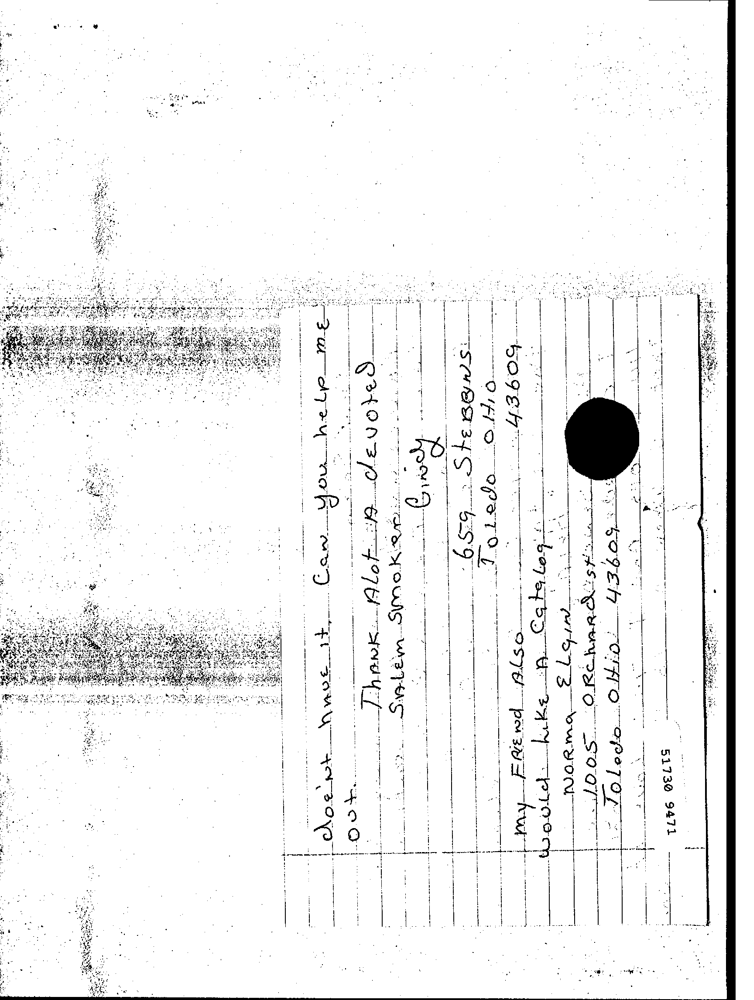 doe'nt have it. Can you help me
out.
Thank Alot A devoted
Salem Smoker
Cindy
659 Stebbins
Toledo OHio
43609
my FRiend Also
would Like A Catalog
NORMA ELgin
1005 ORchard st
Toledo OHio 43609
51730 9471